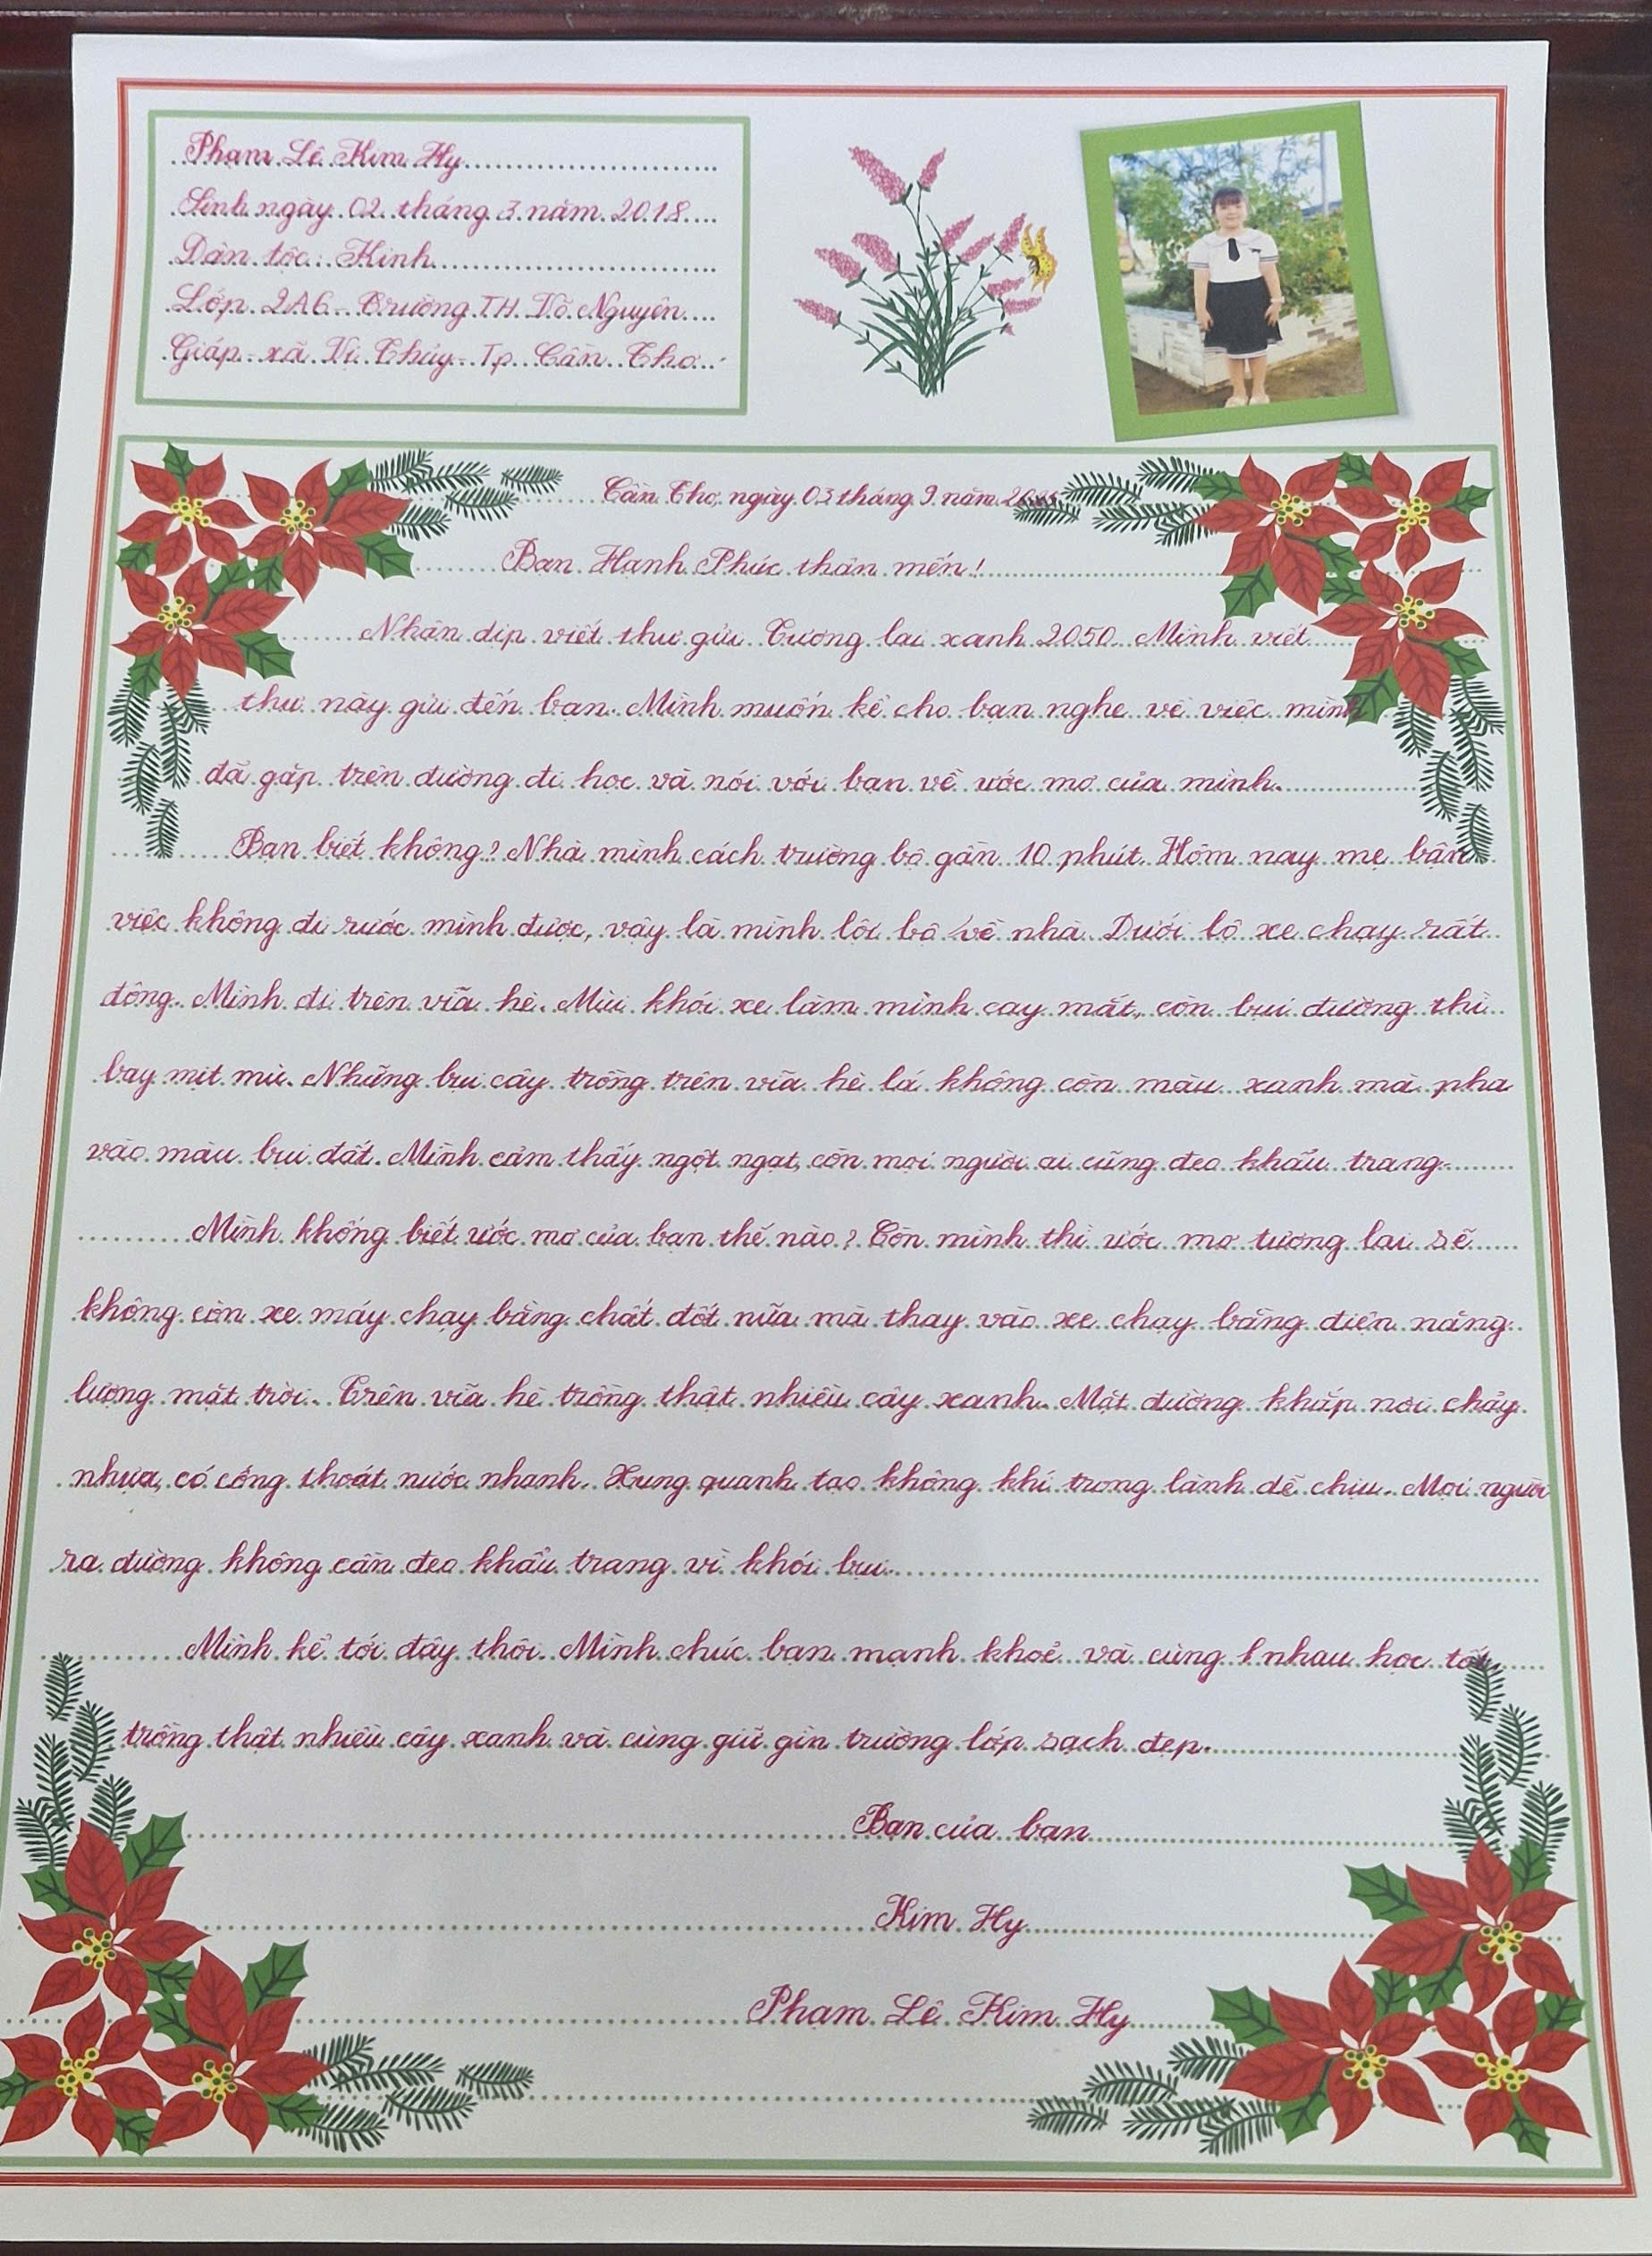 Phạm Lê Kim Hy
Sinh ngày 02 tháng 3 năm 2018
Dân tộc: Kinh
Lớp 2A6 - Trường TH Võ Nguyên
Giáp - xã Vị Thủy - Tp Cần Thơ
Cần Thơ, ngày 03 tháng 9 năm
Bạn Hạnh Phúc thân mến!
Nhân dịp viết thư gửi Tương lai xanh 2050. Mình viết
thư này gửi đến bạn. Mình muốn kể cho bạn nghe về việc mình
đã gặp trên đường đi học và nói với bạn về ước mơ của mình.
Bạn biết không? Nhà mình cách trường bộ gần 10 phút. Hôm nay mẹ bận
việc không đi rước mình được, vậy là mình lội bộ về nhà. Dưới lộ xe chạy rất
đông. Mình đi trên vĩa hè. Mùi khói xe làm mình cay mắt, còn bụi đường thì
bay mịt mù. Những bụi cây trồng trên vĩa hè lá không còn màu xanh mà pha
vào màu bụi đất. Mình cảm thấy ngột ngạt, còn mọi người ai cũng đeo khẩu trang.
Mình không biết ước mơ của bạn thế nào? Còn mình thì ước mơ tương lai sẽ
không còn xe máy chạy bằng chất đốt nữa mà thay vào xe chạy bằng điện năng
lượng mặt trời. Trên vĩa hè trồng thật nhiều cây xanh. Mặt đường khắp nơi chảy
nhựa, có cống thoát nước nhanh. Xung quanh tạo không khí trong lành dễ chịu. Mọi người
ra đường không cần đeo khẩu trang vì khói bụi.
Mình kể tới đây thôi. Mình chúc bạn mạnh khoẻ và cùng nhau học tốt,
trồng thật nhiều cây xanh và cùng giữ gìn trường lớp sạch đẹp.
Bạn của bạn
Kim Hy
Phạm Lê Kim Hy